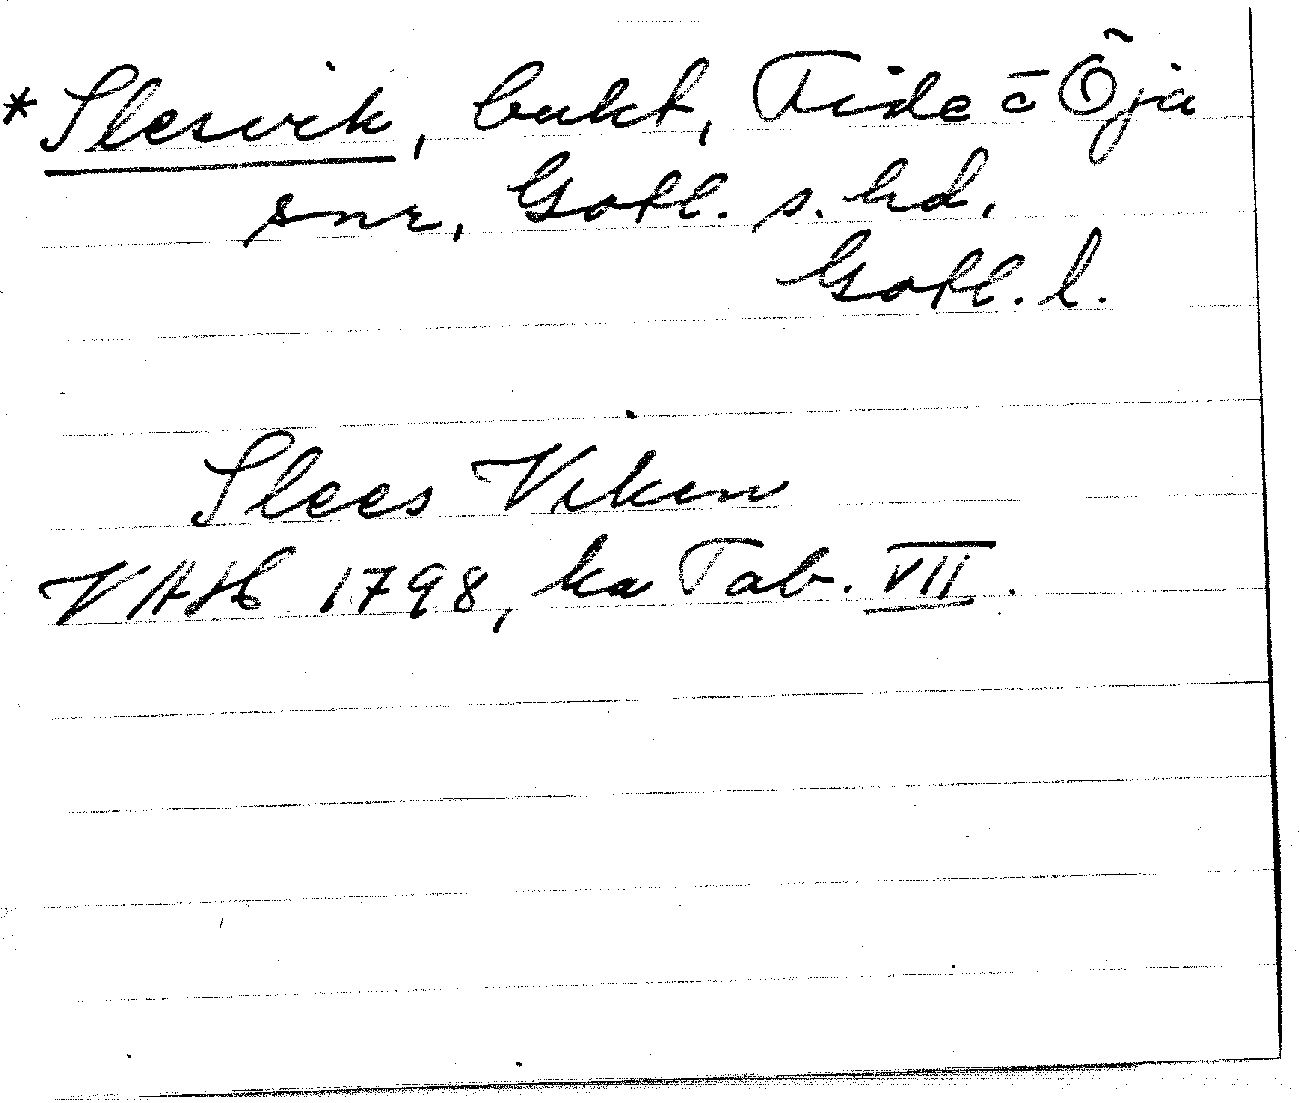 *Slesvik, bukt, Fide o Öja
snr, Gotl. s. hd,
Gotl. l.
Slees Viken
VAH 1798, ka Tab. VII.